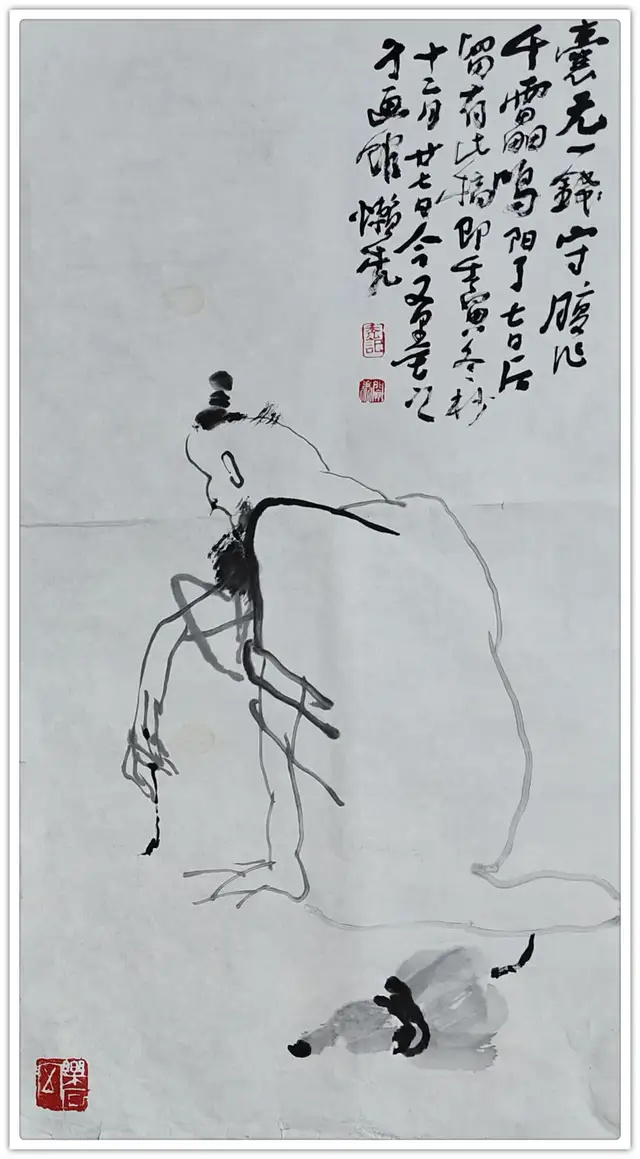 囊无一錢守腹作
千雷鳴阳了七日后
留有此稿即壬寅冬杪
十二月廿七日今又墨
于画馆懒